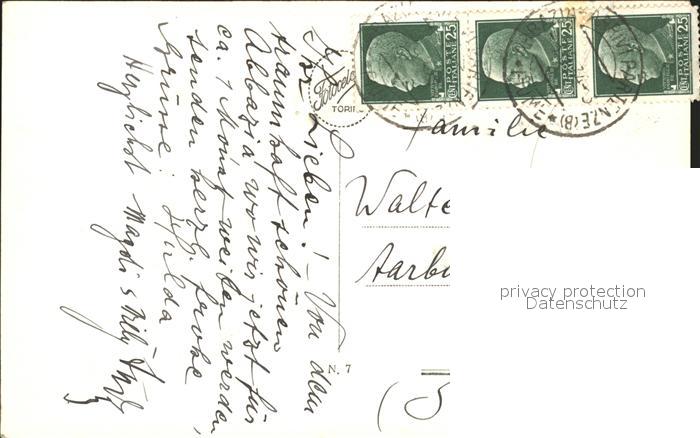 Ihr Lieben! – Von dem
traumhaft schönen
Abbazia wo wir jetzt für
ca. 1 Monat weilen werden,
senden herzl. frohe
Grüsse Hulda
Herzlichst Magdi & Willy
Fotocelere
TORINO
POSTE ITALIANE CENT 25
POSTE ITALIANE CENT 25
POSTE ITALIANE CENT 25
PARTENZE (B)
Familie
Walte
Aarbu
(S
N. 7
privacy protection
Datenschutz